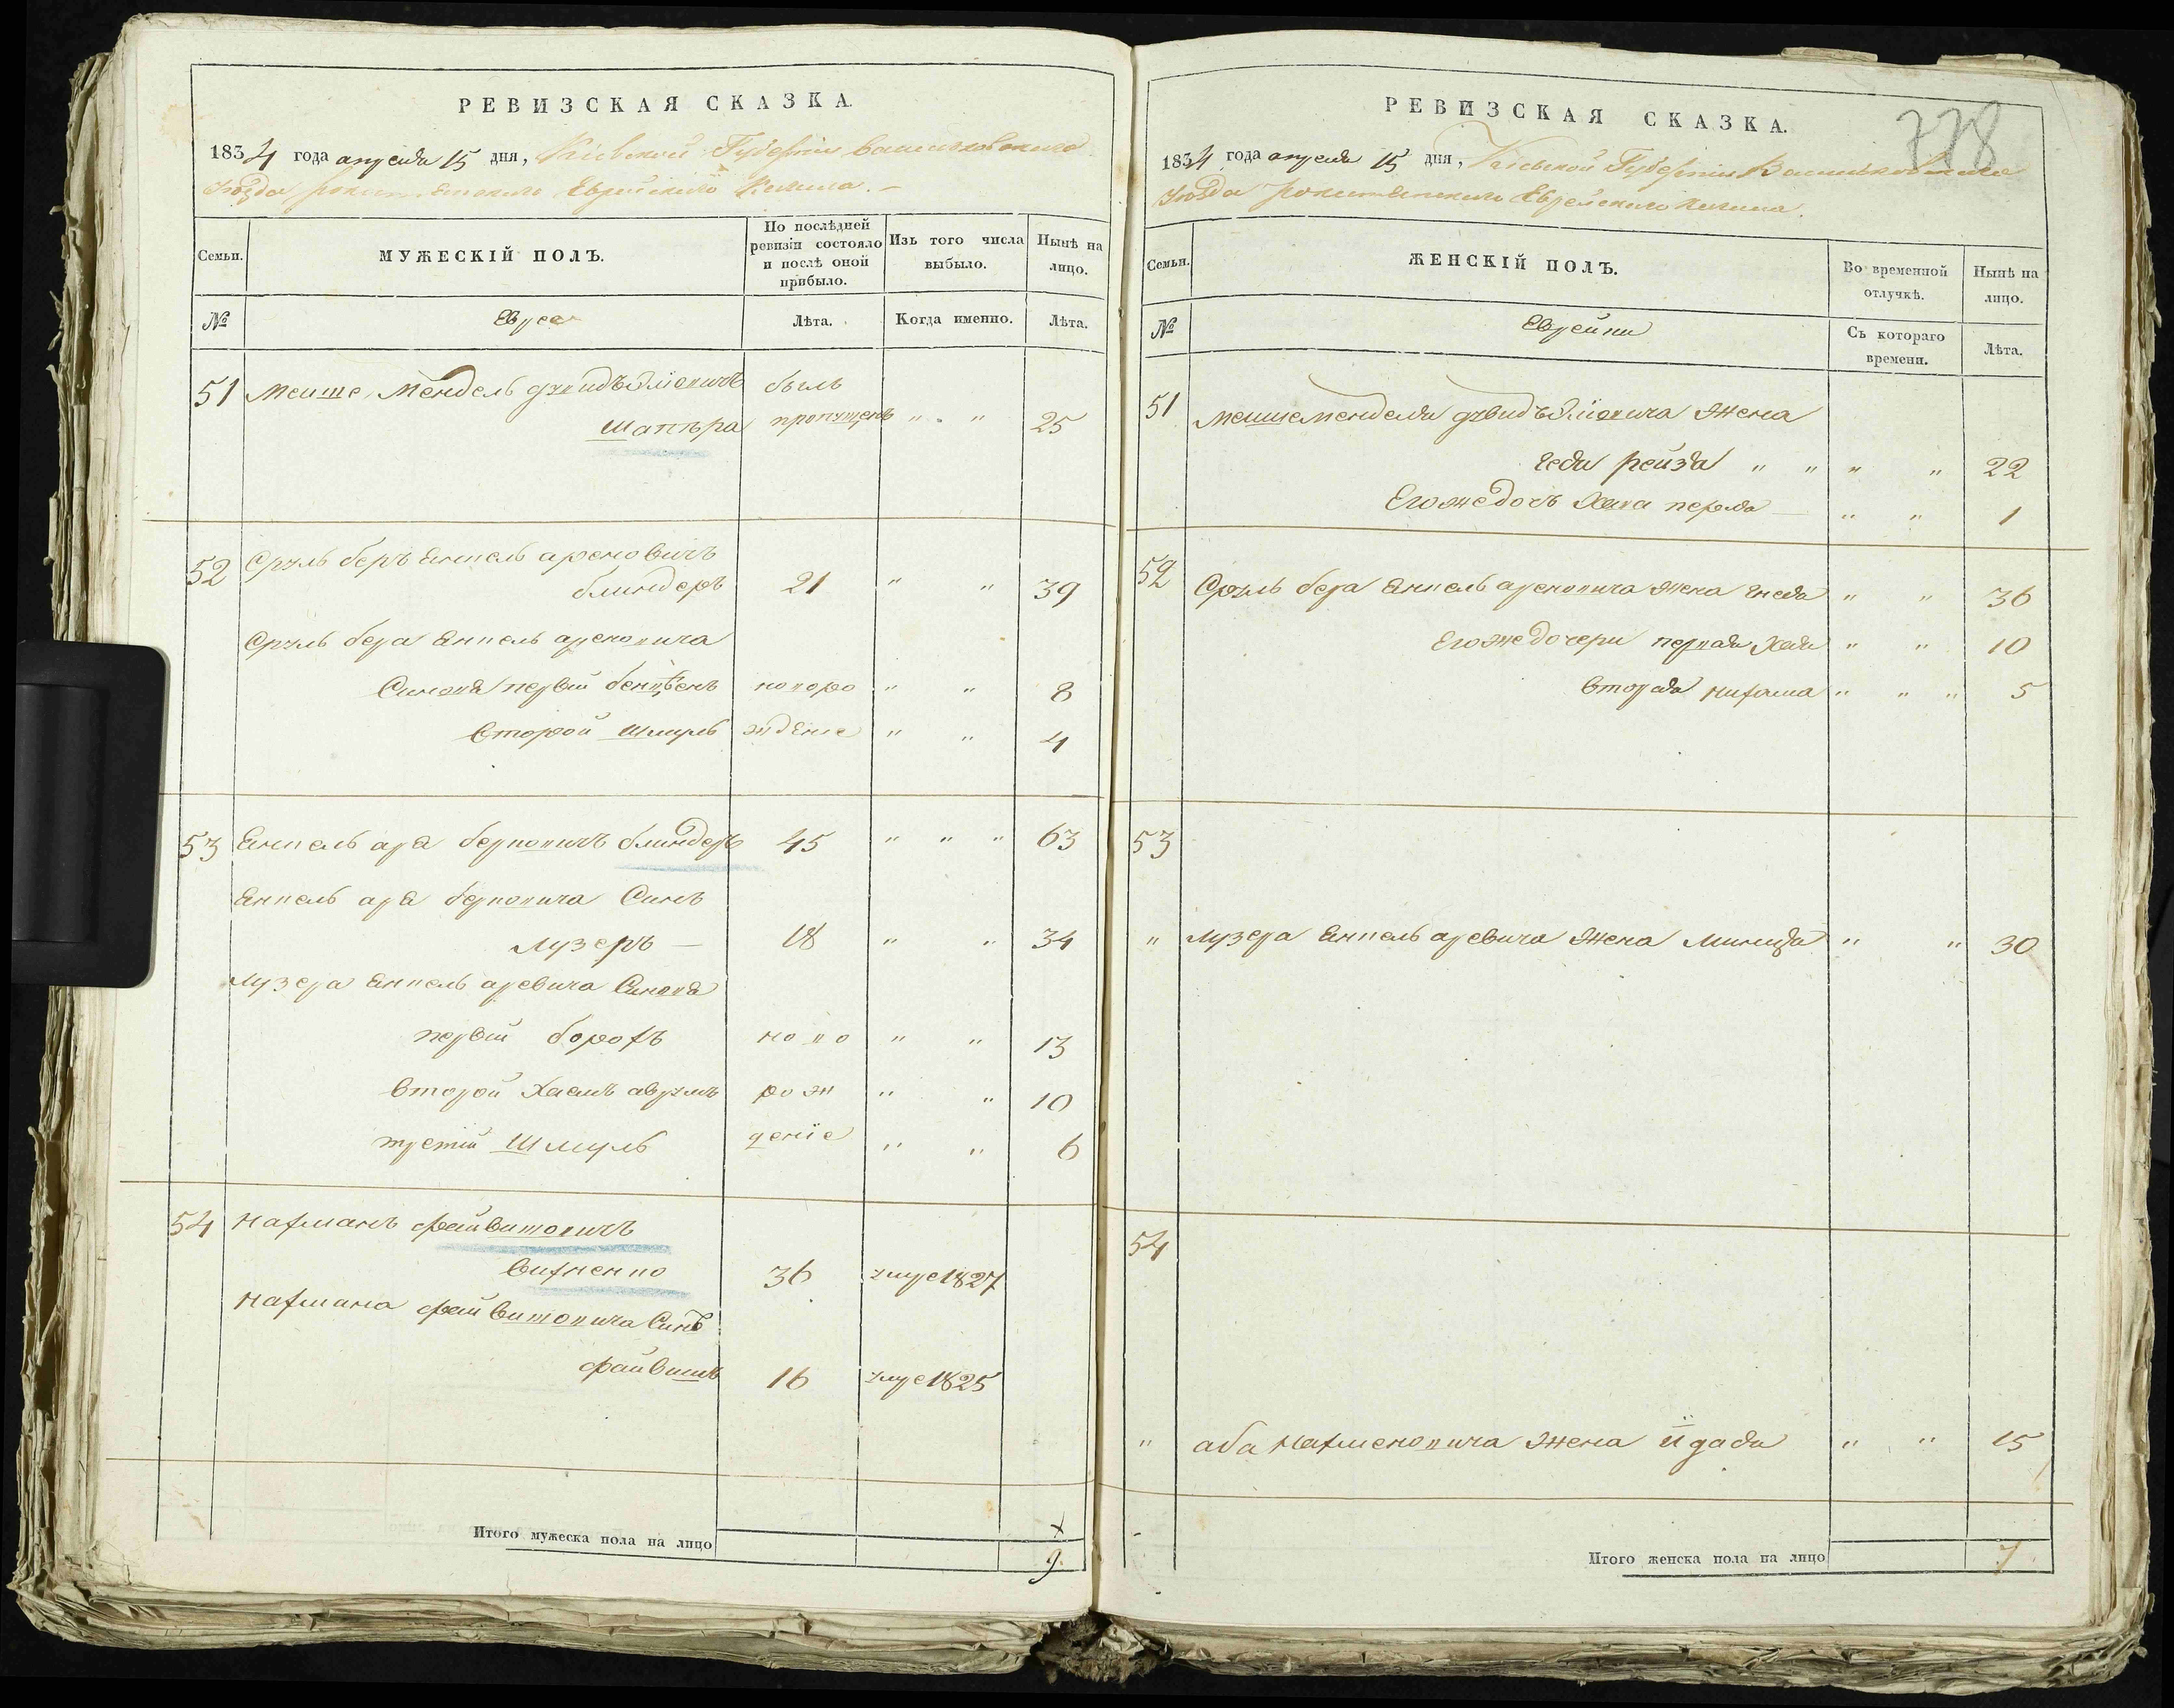 РЕВИЗСКАЯ СКАЗКА.
1834 года апреля 15 дня, Кіевской Губерніи Васильковскаго
уѣзда рокитянского Еврейского Кагала.
Семьи.
МУЖЕСКІЙ ПОЛЪ.
По послѣдней
ревизіи состояло
и послѣ оной
прибыло.
Изъ того числа
выбыло.
Нынѣ на
лицо.
№
Евреи
Лѣта.
Когда именно.
Лѣта.
51 Мейше Мендель Іовичъ былъ
Шапѣра пропущенъ " " 25
52 Сруль беръ Янкель ароновичъ
блиндеръ 21 " " 39
Сруль бера Янкель ароновича
Синова первій бенцѣенъ новоро " " 8
второй Шмуль жденіе " " 4
53 Янкель ара берковичъ блиндеръ 45 " " " 63
Янкель ара берковича Синъ
Лузеръ — 18 " " 34
Лузера Янкель аревича Синова
первій борохъ ново " " 13
второй Хаемъ аврумъ рож " " 10
третій Шмуль деніе " " 6
54 Нахманъ файвитовичъ
Вихненко 36 умре 1827
Нахмана файвитовича Синъ
файвишъ 16 умре 1825
Итого мужеска пола на лицо 9.
РЕВИЗСКАЯ СКАЗКА.
778
1834 года апреля 15 дня, Кіевской Губерніи Васильковскаго
уѣзда рокитянского Еврейского Кагала.
Семьи.
ЖЕНСКІЙ ПОЛЪ.
Во временной
отлучкѣ.
Нынѣ на
лицо.
№
Еврейки
Съ котораго
времени.
Лѣта.
51 Мейше менделя Іовича Жена
рейзя " " " " 22
Егожедочъ Хана перля — " " 1
52 Сруль бера Янкель ароновича Жена Гнеся " " 36
Егожедочери первая Хая " " 10
вторая Нихама " " " 5
53
" Лузера Янкель аревича Жена Миндзя " " 30
54
" аба Нахмановича Жена " " 15
Итого женска пола на лицо 7.